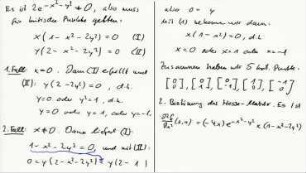 Es ist 2e^{-x²-y²} ≠ 0, also muss
für kritische Punkte gelten:
x(1-x²-2y²) = 0 (I)
y(2-x²-2y²) = 0 (II)
1. Fall: x=0. Dann (I) erfüllt und
(II): y(2-2y²)=0, d.h.
y=0 oder y²=1, d.h.
y=0 oder y=1, oder y=-1.
2. Fall: x≠0. Dann liefert (I):
1-x²-2y²=0, und mit (II):
0=y(2-x²-2y²)=y(2-1)
also 0=y
Mit (I) bekommen wir dann:
x(1-x²)=0, d.h.
x=0 oder x=1 oder x=-1.
Zusammen haben wir 5 krit. Punkte:
[0 0], [0 1], [0 -1], [1 0], [-1 0]
2. Bestimmung der Hesse-Matrix. Es ist
(x,y) = (-4x)e^{-x²-y²} x(1-x²-2y²)